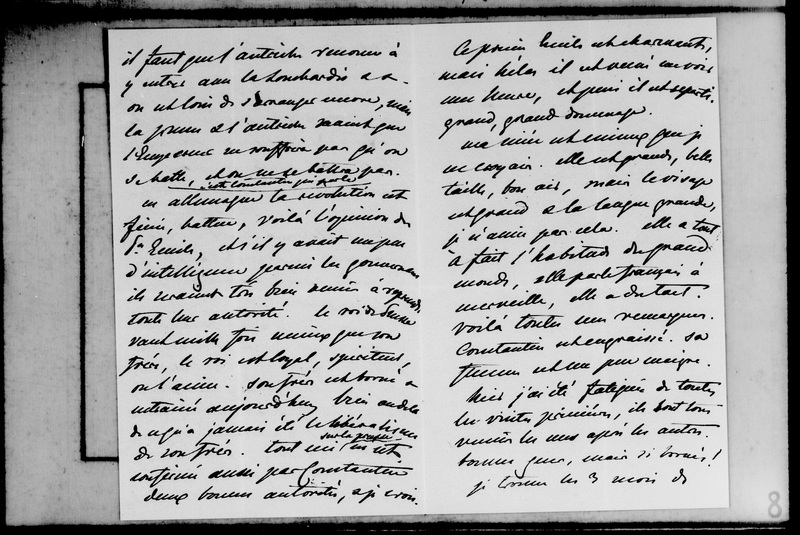 il faut que l'autriche renonce à
y entrer dans la Lombardie
on est loin de s'arranger encore, mais
la france et l'autriche craint que
l'Empereur ne souffrira pas qu'on
se batte, et on ne se battra pas.
c'est Constantin qui parle
en allemagne la révolution est
finie, battue, voilà l'opinion du
Pce Emile, et s'il y avait un peu
d'intelligence parmi les gouvernans
ils seraient très bien venir à reprendre
toute leur autorité. le roi de
vaut mille fois mieux que son
frère, le roi est loyal, spirituel,
on l'aime. son frère est borné
entrainé aujourd'hui bien au delà
de ce qu'a jamais été le libéralisme
de son frère. tout ceci
sur la prusse est
confirmé aussi par Constantin
deux bonnes autorités, à ce je crois.
Ce prince Emile est charmant,
mais hélas il est venu me voir
une heure, et puis il est reparti.
grand, grand dommage.
ma nièce est mieux que je
ne croyais. elle est grande, belle
taille, bon air, mais le visage
est grand et la langue grande,
je n'aime pas cela. elle a tout
à fait l'habitude du grand
monde, elle parle français à
merveille, elle a du tact.
voilà toutes mes remarques.
Constantin est engraissé. sa
femme est un peu maigre.
hier j'ai été fatiguée de toutes
les visites princières, ils sont tous
venus les uns après les autres.
bonnes gens, mais si bornés!
je trouve les 3 mois de
8